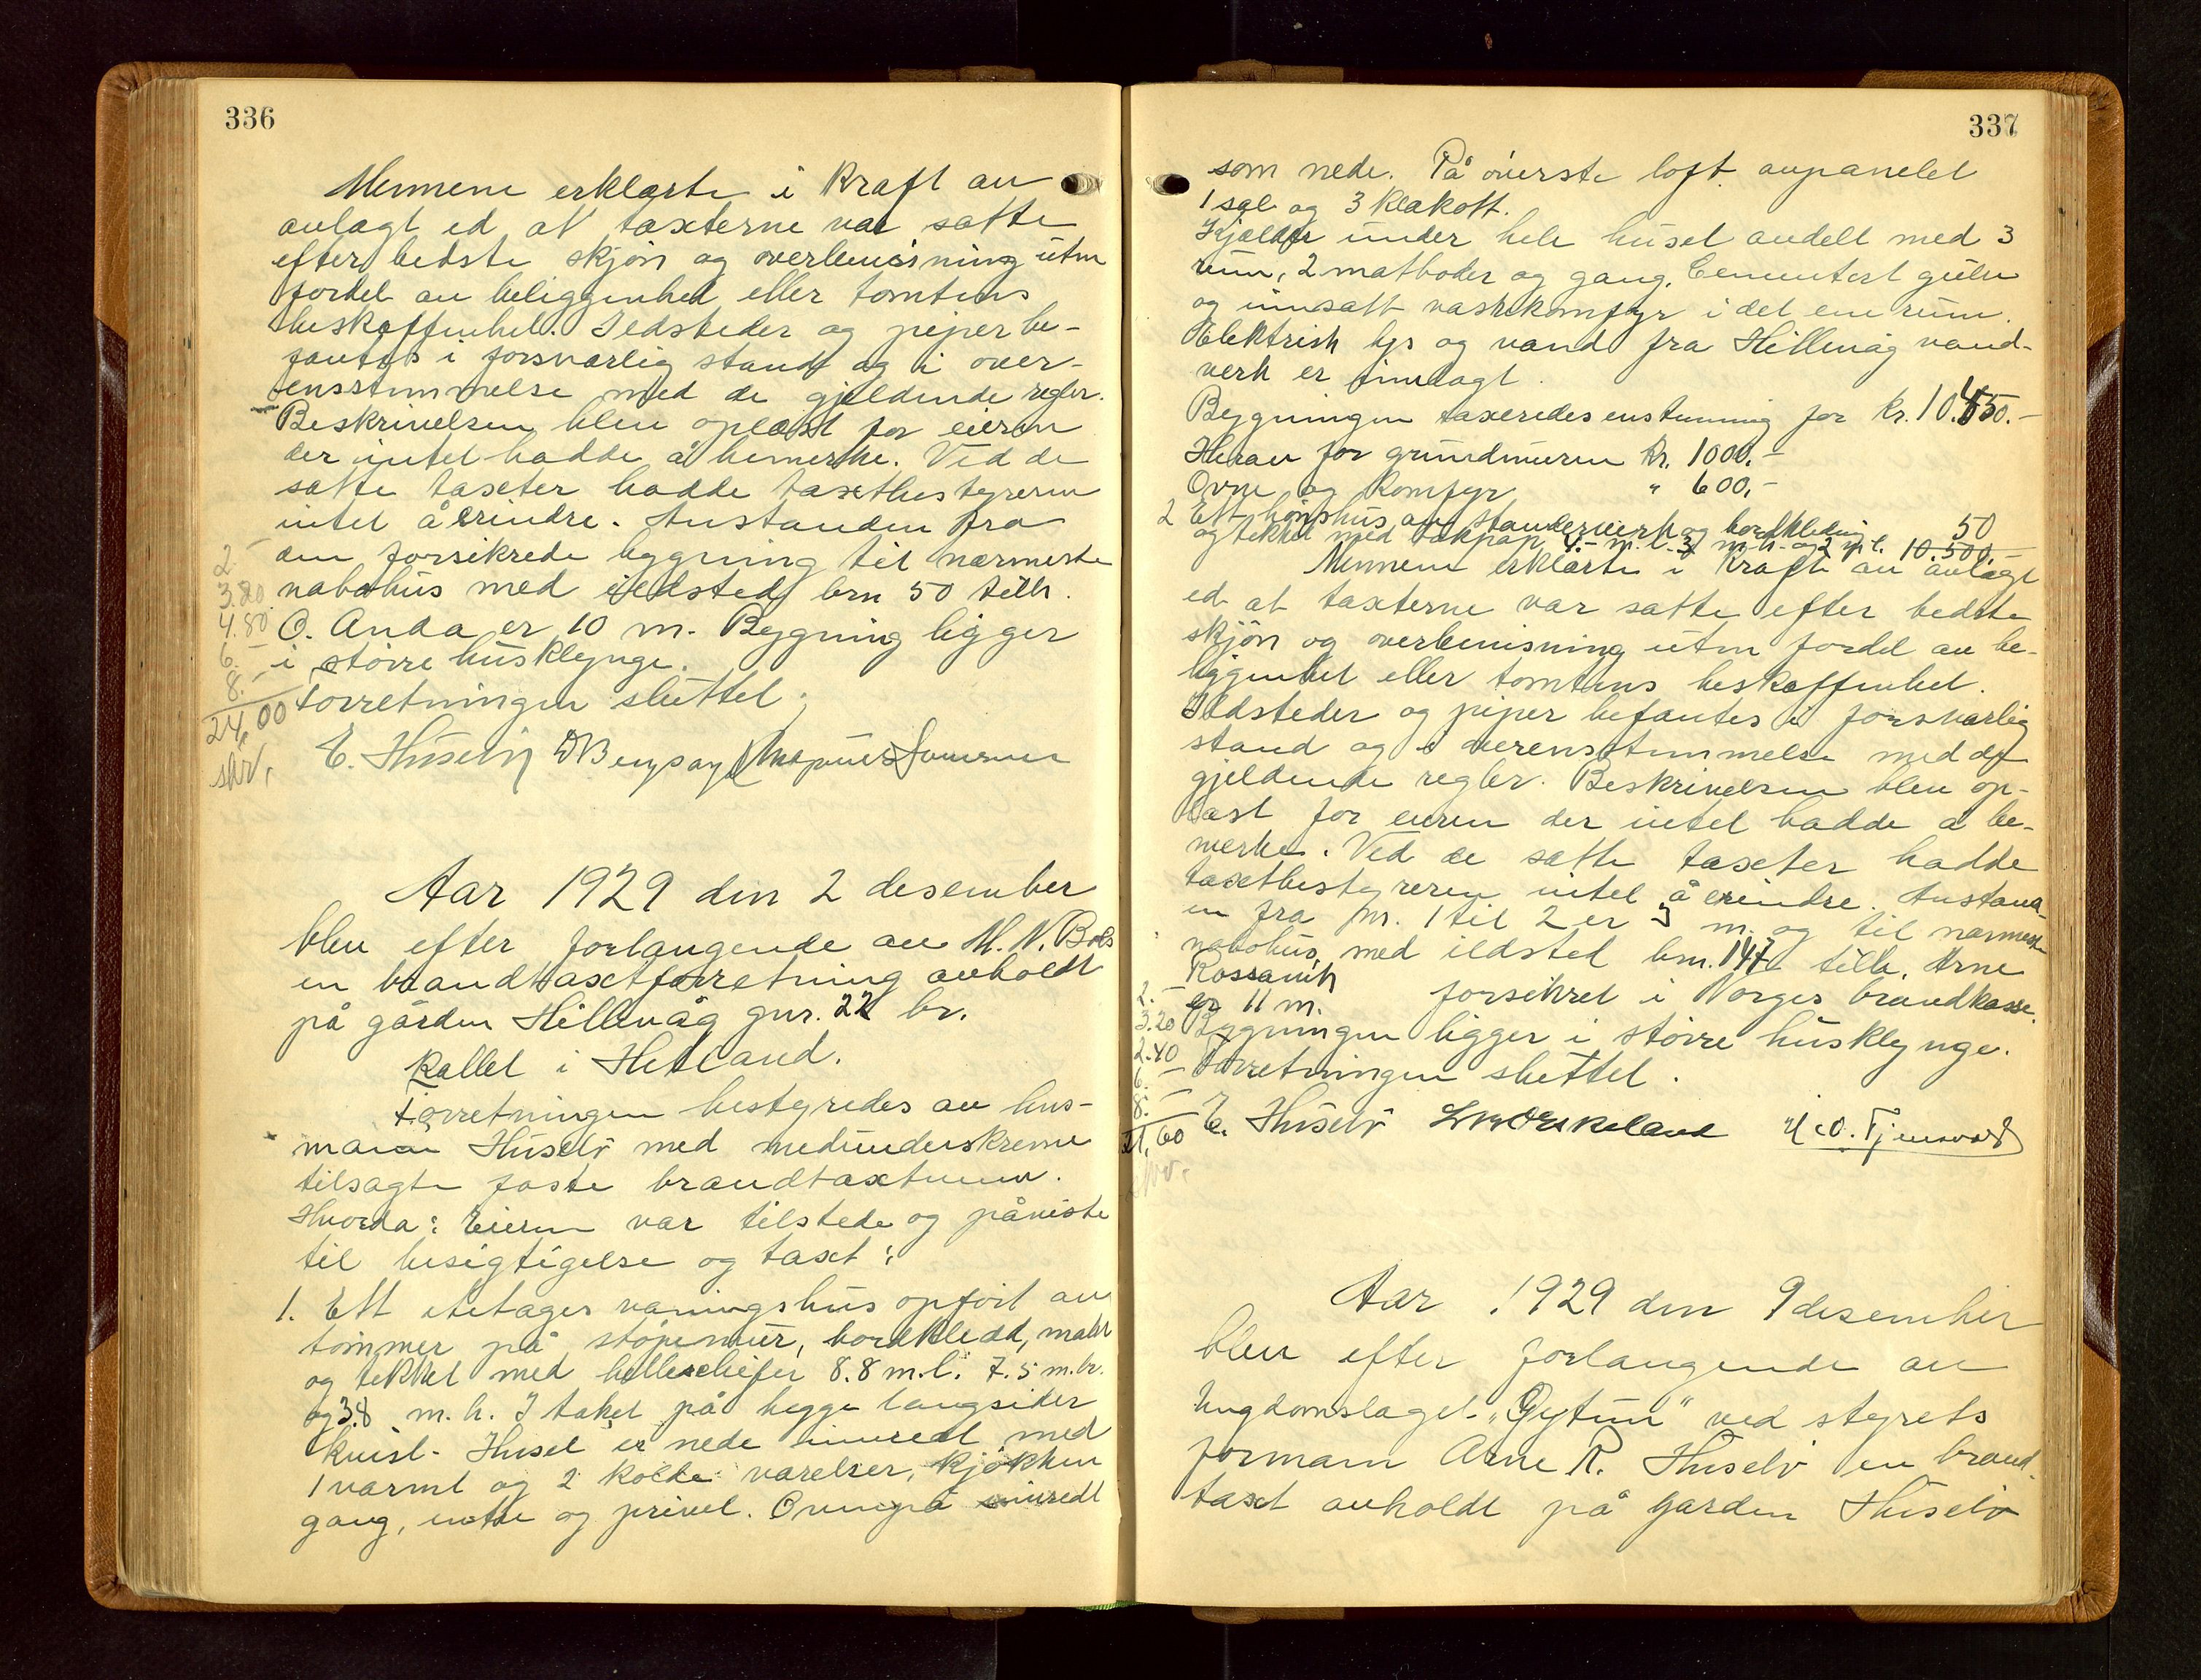 336
Mennene erklærte i kraft av
avlagt ed at taxterne var satte
efter bedste skjøn og overbevisning uten
fordel av beliggenhet eller tomtens
beskaffenhet. Ildsteder og piper be-
fantes i forsvarlig stand og i over-
ensstemmelse med de gjeldende regler.
Beskrivelsen blev oplæst for eieren
der intet hadde å bemerke. Ved de
satte taxter hadde taxtbestyreren
intet å erindre. Avstanden fra
den forsikrede bygning til nærmeste
nabohus med ildsted brn 50 tilh.
O. Anda er 10 m. Bygning ligger
i större husklynge.
Forretningen sluttet.
2 -
3.80
4.80
6. -
8. -
24,00
skr.
E. Huselv
Aar 1929 den 2 desember
blev efter forlangende av M. N. Bøls
en brandtaxtforretning avholdt
på gården Hillevåg gnr. 22 br.
kallet i Hetland.
Forretningen bestyredes av hus-
mann Huselv med medunderskrevne
tilsagte faste brandtaxtmenn.
Hvorda: Eieren var tilstede og påviste
til besigtigelse og taxt:
1. Ett etages våningshus opfört av
tömmer på stöpemur, bordkledd, malt
og tekket med helleskifer 8.8 m.l. 7.5 m.br.
og 3.8 m.h. I taket på begge langsider
kvist. Huset er nede innredt med
1 varmt og 2 kolde værelser, kjökken
gang, entre og privet. Ovenpå innredt
337
som nede. På överste loft avpanelet
1 sal og 3 klækott.
Kjelder under hele huset avdelt med 3
rum, 2 matboder og gang. Cementert gulv
og innsatt vaskekomfyr i det ene rum.
Elektrisk lys og vand fra Hillevåg vand-
verk er innlagt.
Bygningen taxeredes enstemmig for kr. 10.450.-
Herav for grundmuren kr. 1000.-
Ovne og komfyr " 600,-
2 Ett hönshus av stenderverk og bordkledning 50
og tekket med takpap 4.- m.l. 3 m.h. og 2 m. 10.500.-
Mennene erklærte i kraft av avlagt
ed at taxterne var satte efter bedste
skjön og overbevisning uten fordel av be-
liggenhet eller tomtens beskaffenhet.
Ildsteder og piper befantes i forsvarlig
stand og i overensstemmelse med de
gjeldende regler. Beskrivelsen blev op-
læst for eieren der intet hadde å be-
merke. Ved de satte taxter hadde
taxtbestyreren intet å erindre. Avstand-
en fra nr. 1 til 2 er 5 m. og til nærmeste
nabohus, med ildsted brn. 147 tilh. Arne
Rossavik
er 11 m. forsikret i Norges brandkasse.
Bygningen ligger i större husklynge.
Forretningen sluttet.
2. -
3.20
2.40
6. -
8. -
21,60
E. Huselv
Aar 1929 den 9 desember
blev efter forlangende av
Ungdomslaget "Gytun" ved styrets
formann Arne R. Huselv en brand-
taxt avholdt på garden Huselv